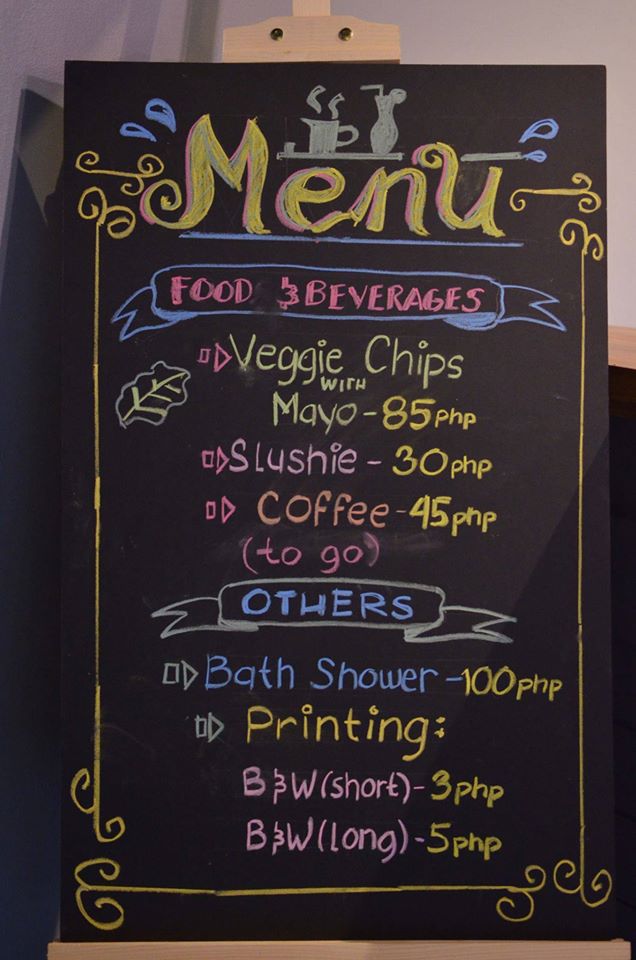 Menu
FOOD & BEVERAGES
Veggie Chips
WITH
Mayo - 85php
Slushie - 30php
Coffee - 45php
(to go)
OTHERS
Bath Shower - 100php
Printing:
B&W (short) - 3php
B&W (long) - 5php